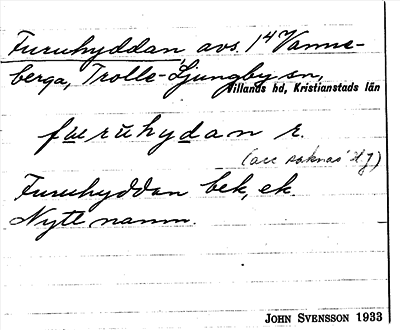 Furuhyddan avs. 1⁴⁷ Vanne-
berga, Trolle-Ljungby sn,
Villands hd, Kristianstads län
fɯrŭhydan r.
(acc saknas
Furuhyddan bek, ek.
Nytt namn.
JOHN SVENSSON 1933